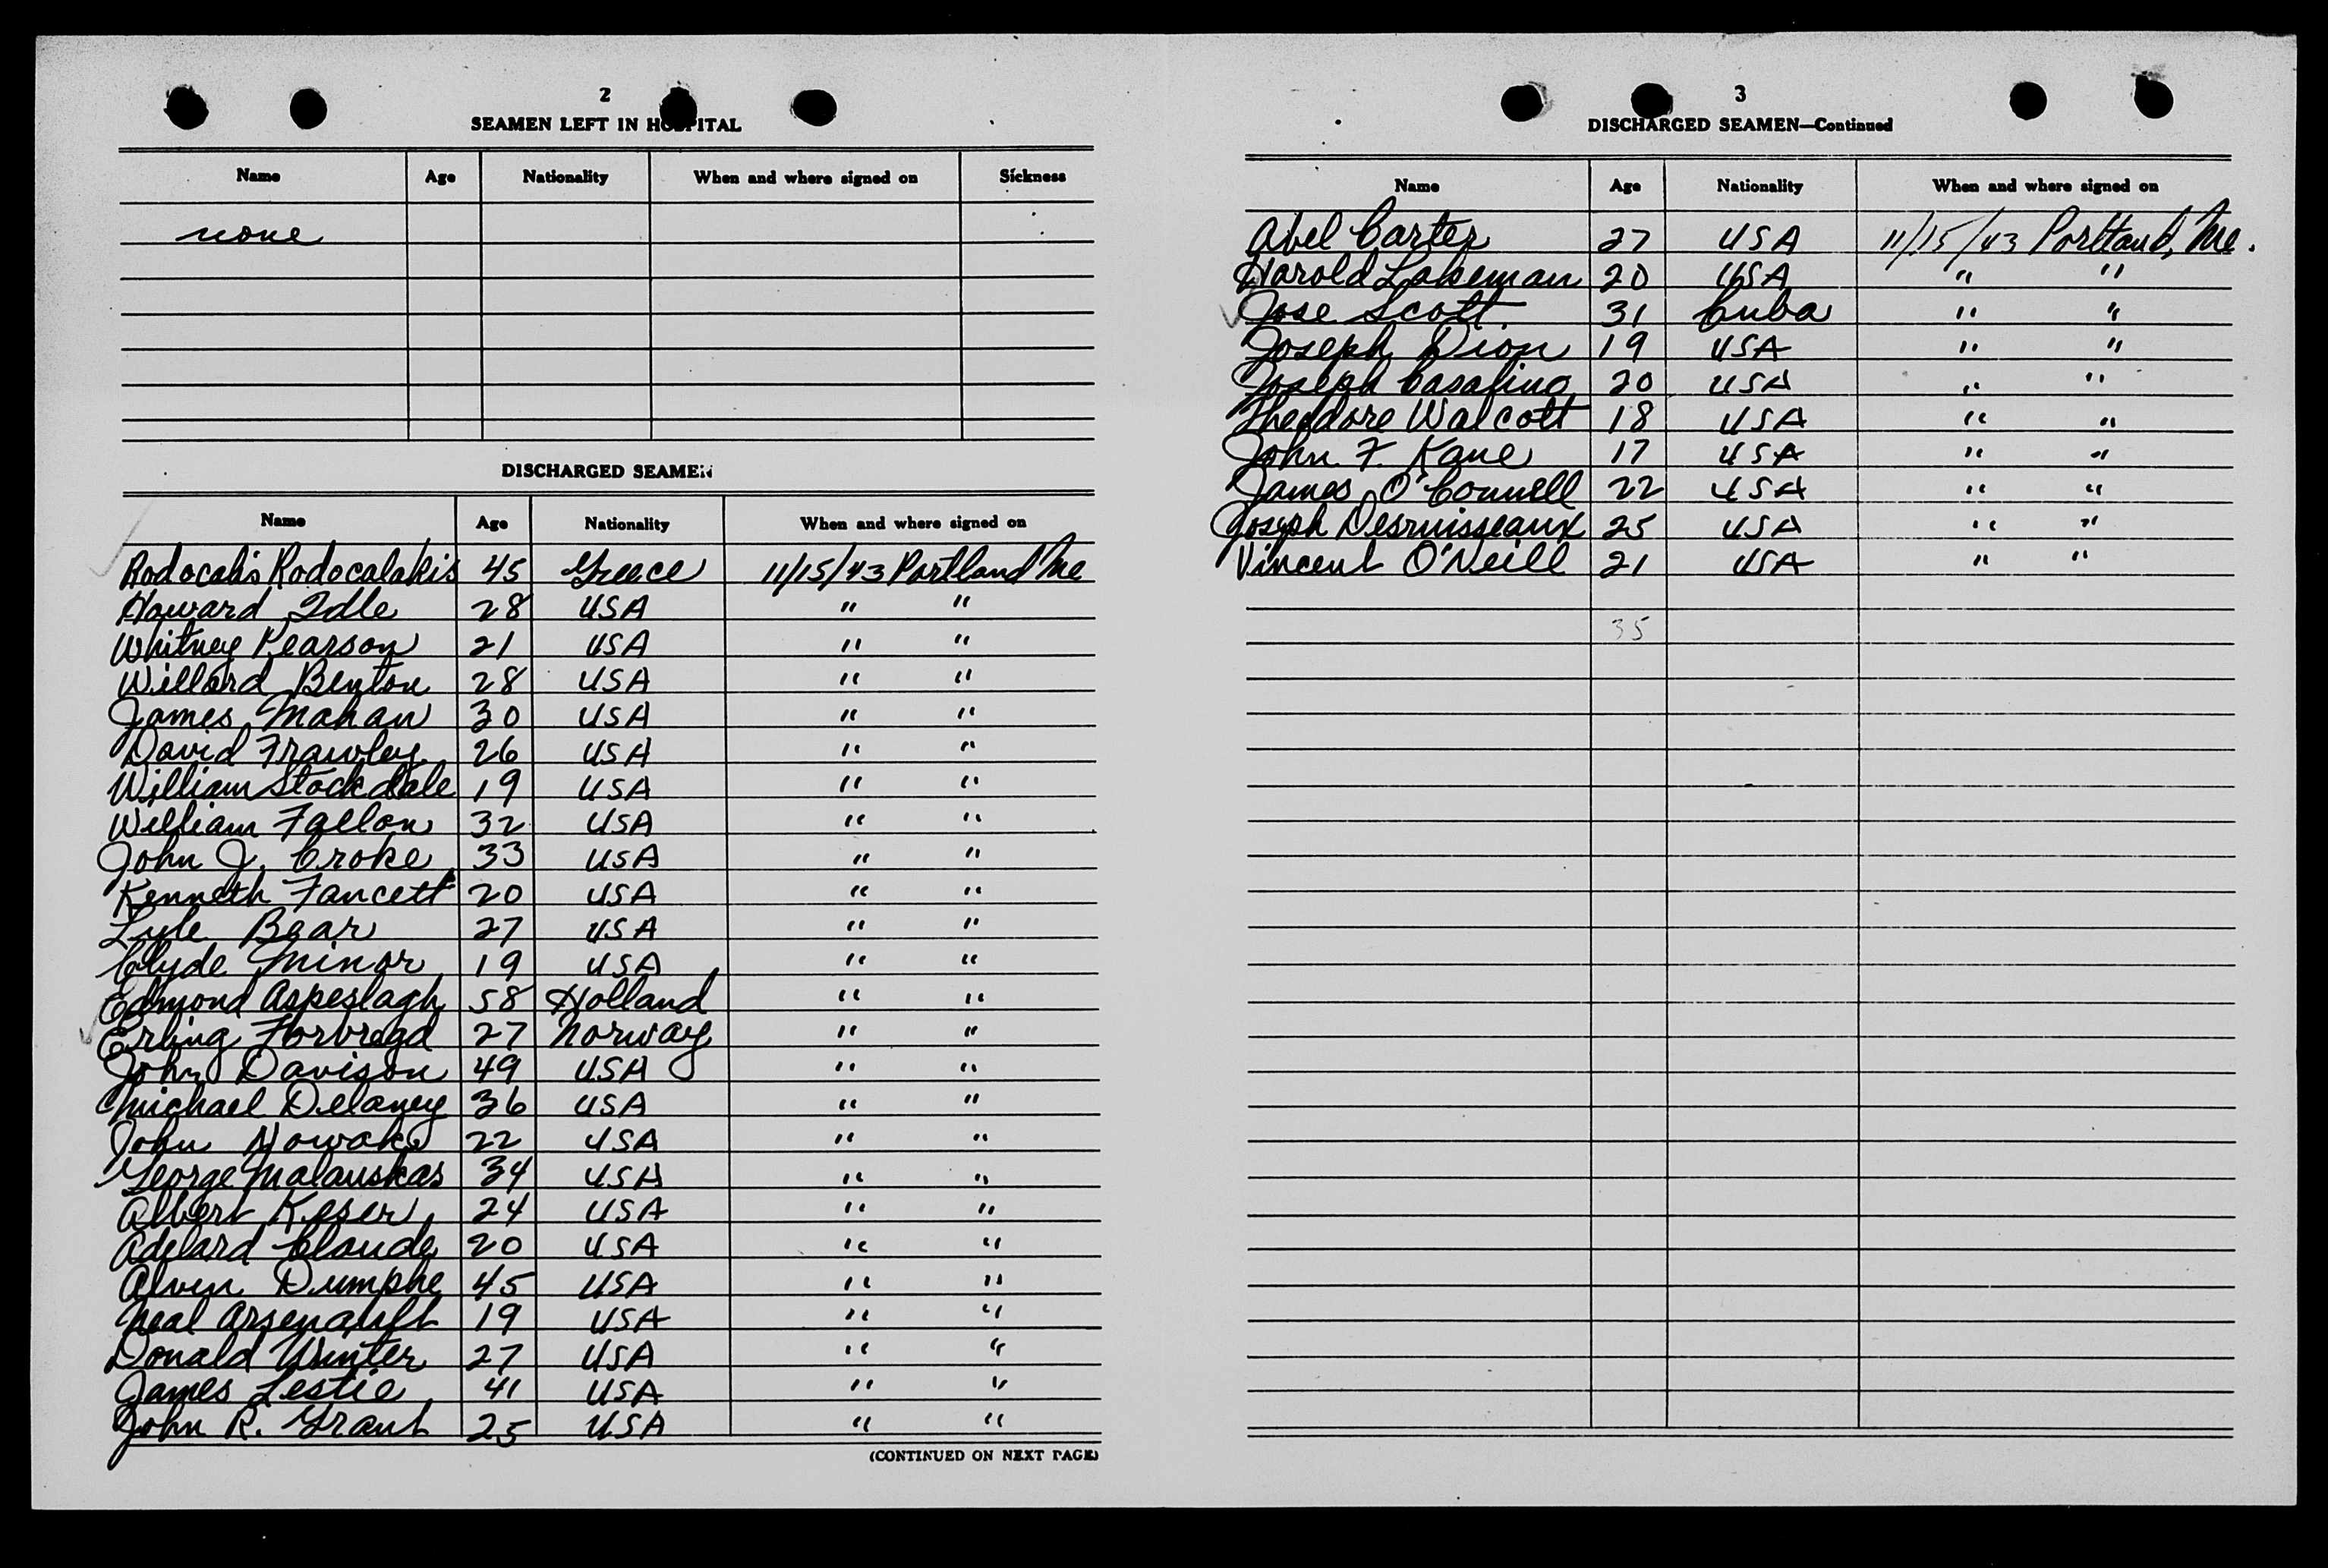 2
SEAMEN LEFT IN HOSPITAL
Name Age Nationality When and where signed on Sickness
none
DISCHARGED SEAMEN
Name Age Nationality When and where signed on
Rodocalis Rodocalakis 45 Greece 11/15/43 Portland Me
Howard Idle 28 USA " "
Whitney Pearson 21 USA " "
Willard Benton 28 USA " "
James Mahan 30 USA " "
David Frawley 26 USA " "
William Stockdale 19 USA " "
William Fallon 32 USA " "
John J. Croke 33 USA " "
Kenneth Fancett 20 USA " "
Lyle Bear 27 USA " "
Clyde Minor 19 USA " "
Edmond Aspeslagh 58 Holland " "
Erling Forbregd 27 Norway " "
John Davison 49 USA " "
Michael Delaney 36 USA " "
John Nowak 22 USA " "
George Malauskas 34 USA " "
Albert Keser 24 USA " "
Adelard Claude 20 USA " "
Alven Dumphe 45 USA " "
Neal Arsenault 19 USA " "
Donald Winter 27 USA " "
James Leslie 41 USA " "
John R. Grant 25 USA " "
(CONTINUED ON NEXT PAGE)
3
DISCHARGED SEAMEN—Continued
Name Age Nationality When and where signed on
Abel Carter 27 USA 11/15/43 Portland, Me.
Harold Lakeman 20 USA " "
Jose Scott 31 Cuba " "
Joseph Dion 19 USA " "
Joseph Casafino 20 USA " "
Theodore Walcott 18 USA " "
John F. Kane 17 USA " "
James O'Connell 22 USA " "
Joseph Desruisseaux 25 USA " "
Vincent O'Neill 21 USA " "
35